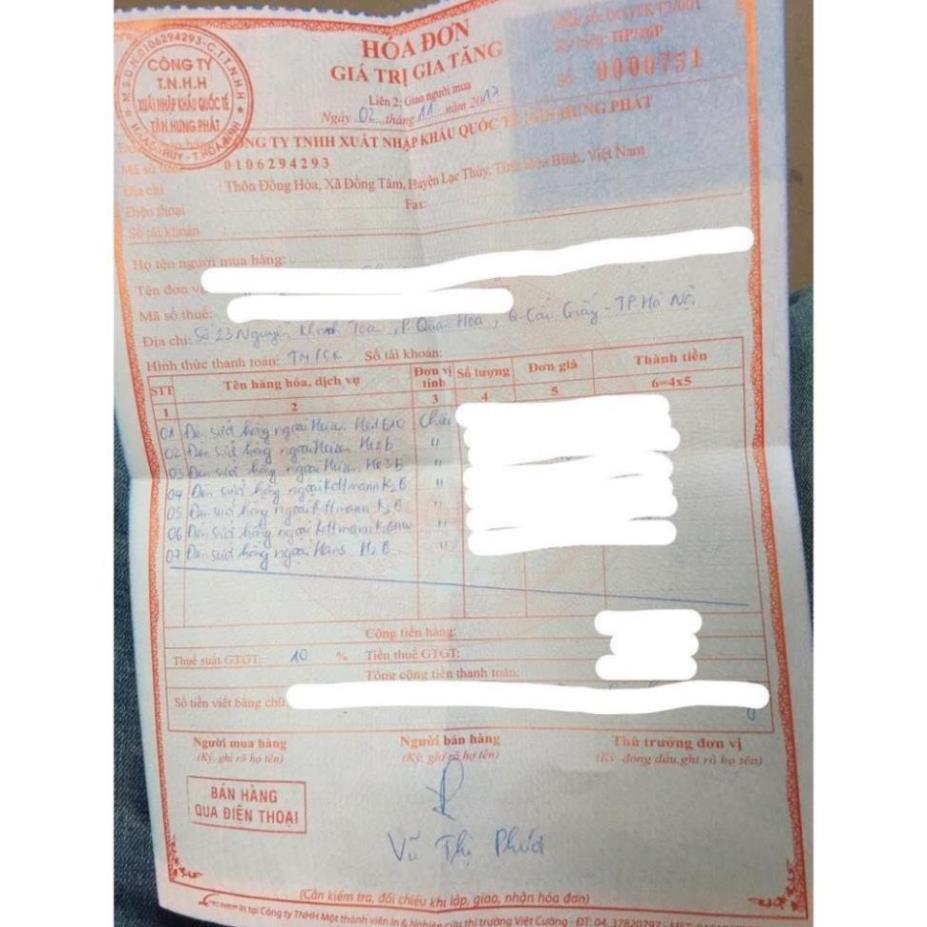 M.S.D.N:0106294293-C.T.T.N.H.H
CÔNG TY
T.N.H.H
XUẤT NHẬP KHẨU QUỐC TẾ
TÂN HƯNG PHÁT
H. LẠC THỦY - T. HÒA BÌNH
HÓA ĐƠN
GIÁ TRỊ GIA TĂNG
Liên 2: Giao người mua
Ngày 02 tháng 11 năm 2017
HP/16P
Số: 0000751
CÔNG TY TNHH XUẤT NHẬP KHẨU QUỐC TẾ TÂN HƯNG PHÁT
Mã số thuế: 0106294293
Địa chỉ : Thôn Đồng Hòa, Xã Đồng Tâm, Huyện Lạc Thủy, Tỉnh Hòa Bình, Việt Nam
Điện thoại : Fax:
Số tài khoản :
Họ tên người mua hàng:
Tên đơn vị
Mã số thuế:
Địa chỉ: Số 23 Nguyễn Khánh Toàn, P. Quan Hoa, Q. Cầu Giấy - TP. Hà Nội
Hình thức thanh toán: TM/CK Số tài khoản:
STT Tên hàng hóa, dịch vụ Đơn vị tính Số lượng Đơn giá Thành tiền
1 2 3 4 5 6=4x5
01 Đèn sưởi hồng ngoại Heizen Chiếc
02 Đèn sưởi hồng ngoại Heizen "
03 Đèn sưởi hồng ngoại Heizen "
04 Đèn sưởi hồng ngoại Kottmann "
05 Đèn sưởi hồng ngoại Kottmann "
06 Đèn sưởi hồng ngoại Kottmann "
07 Đèn sưởi hồng ngoại Hans "
Cộng tiền hàng:
Thuế suất GTGT: 10 % Tiền thuế GTGT:
Tổng cộng tiền thanh toán:
Số tiền viết bằng chữ:
Người mua hàng Người bán hàng Thủ trưởng đơn vị
(Ký, ghi rõ họ tên) (Ký, ghi rõ họ tên) (Ký, đóng dấu, ghi rõ họ tên)
BÁN HÀNG
QUA ĐIỆN THOẠI
Vũ Thị
(Cần kiểm tra, đối chiếu khi lập, giao, nhận hóa đơn)
in tại Công ty TNHH Một thành viên In & Nghiên cứu thị trường Việt Cường - ĐT: 04. 37820797